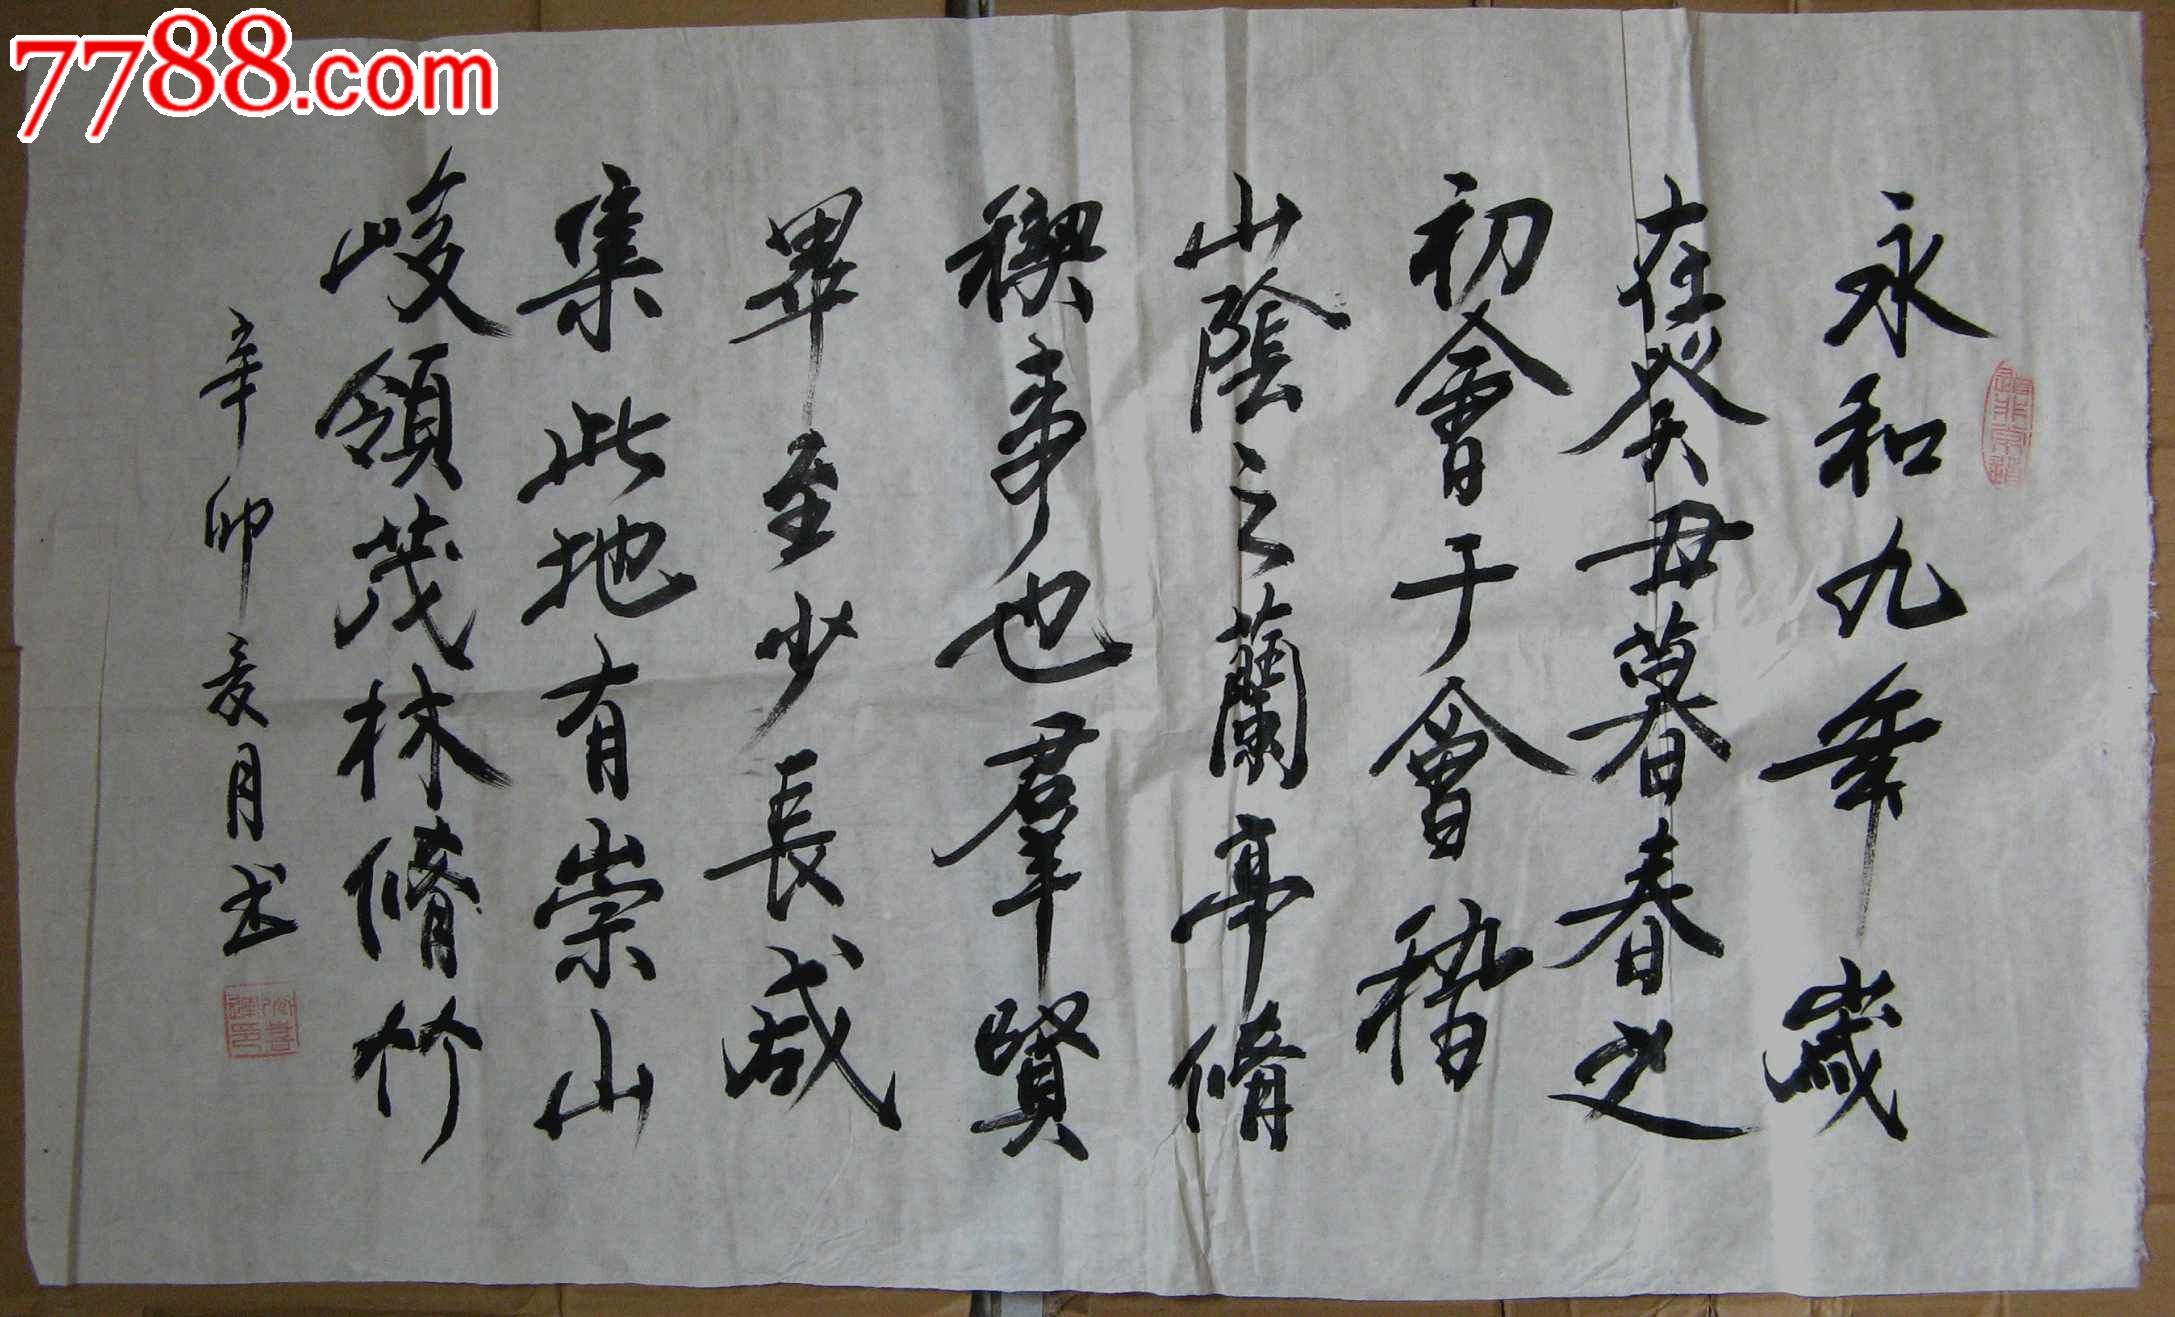 永和九年歲
在癸丑暮春之
初會于會稽
山陰之蘭亭脩
稧事也羣賢
畢至少長咸
集此地有崇山
峻領茂林脩竹
辛卯夏月书
7788.com